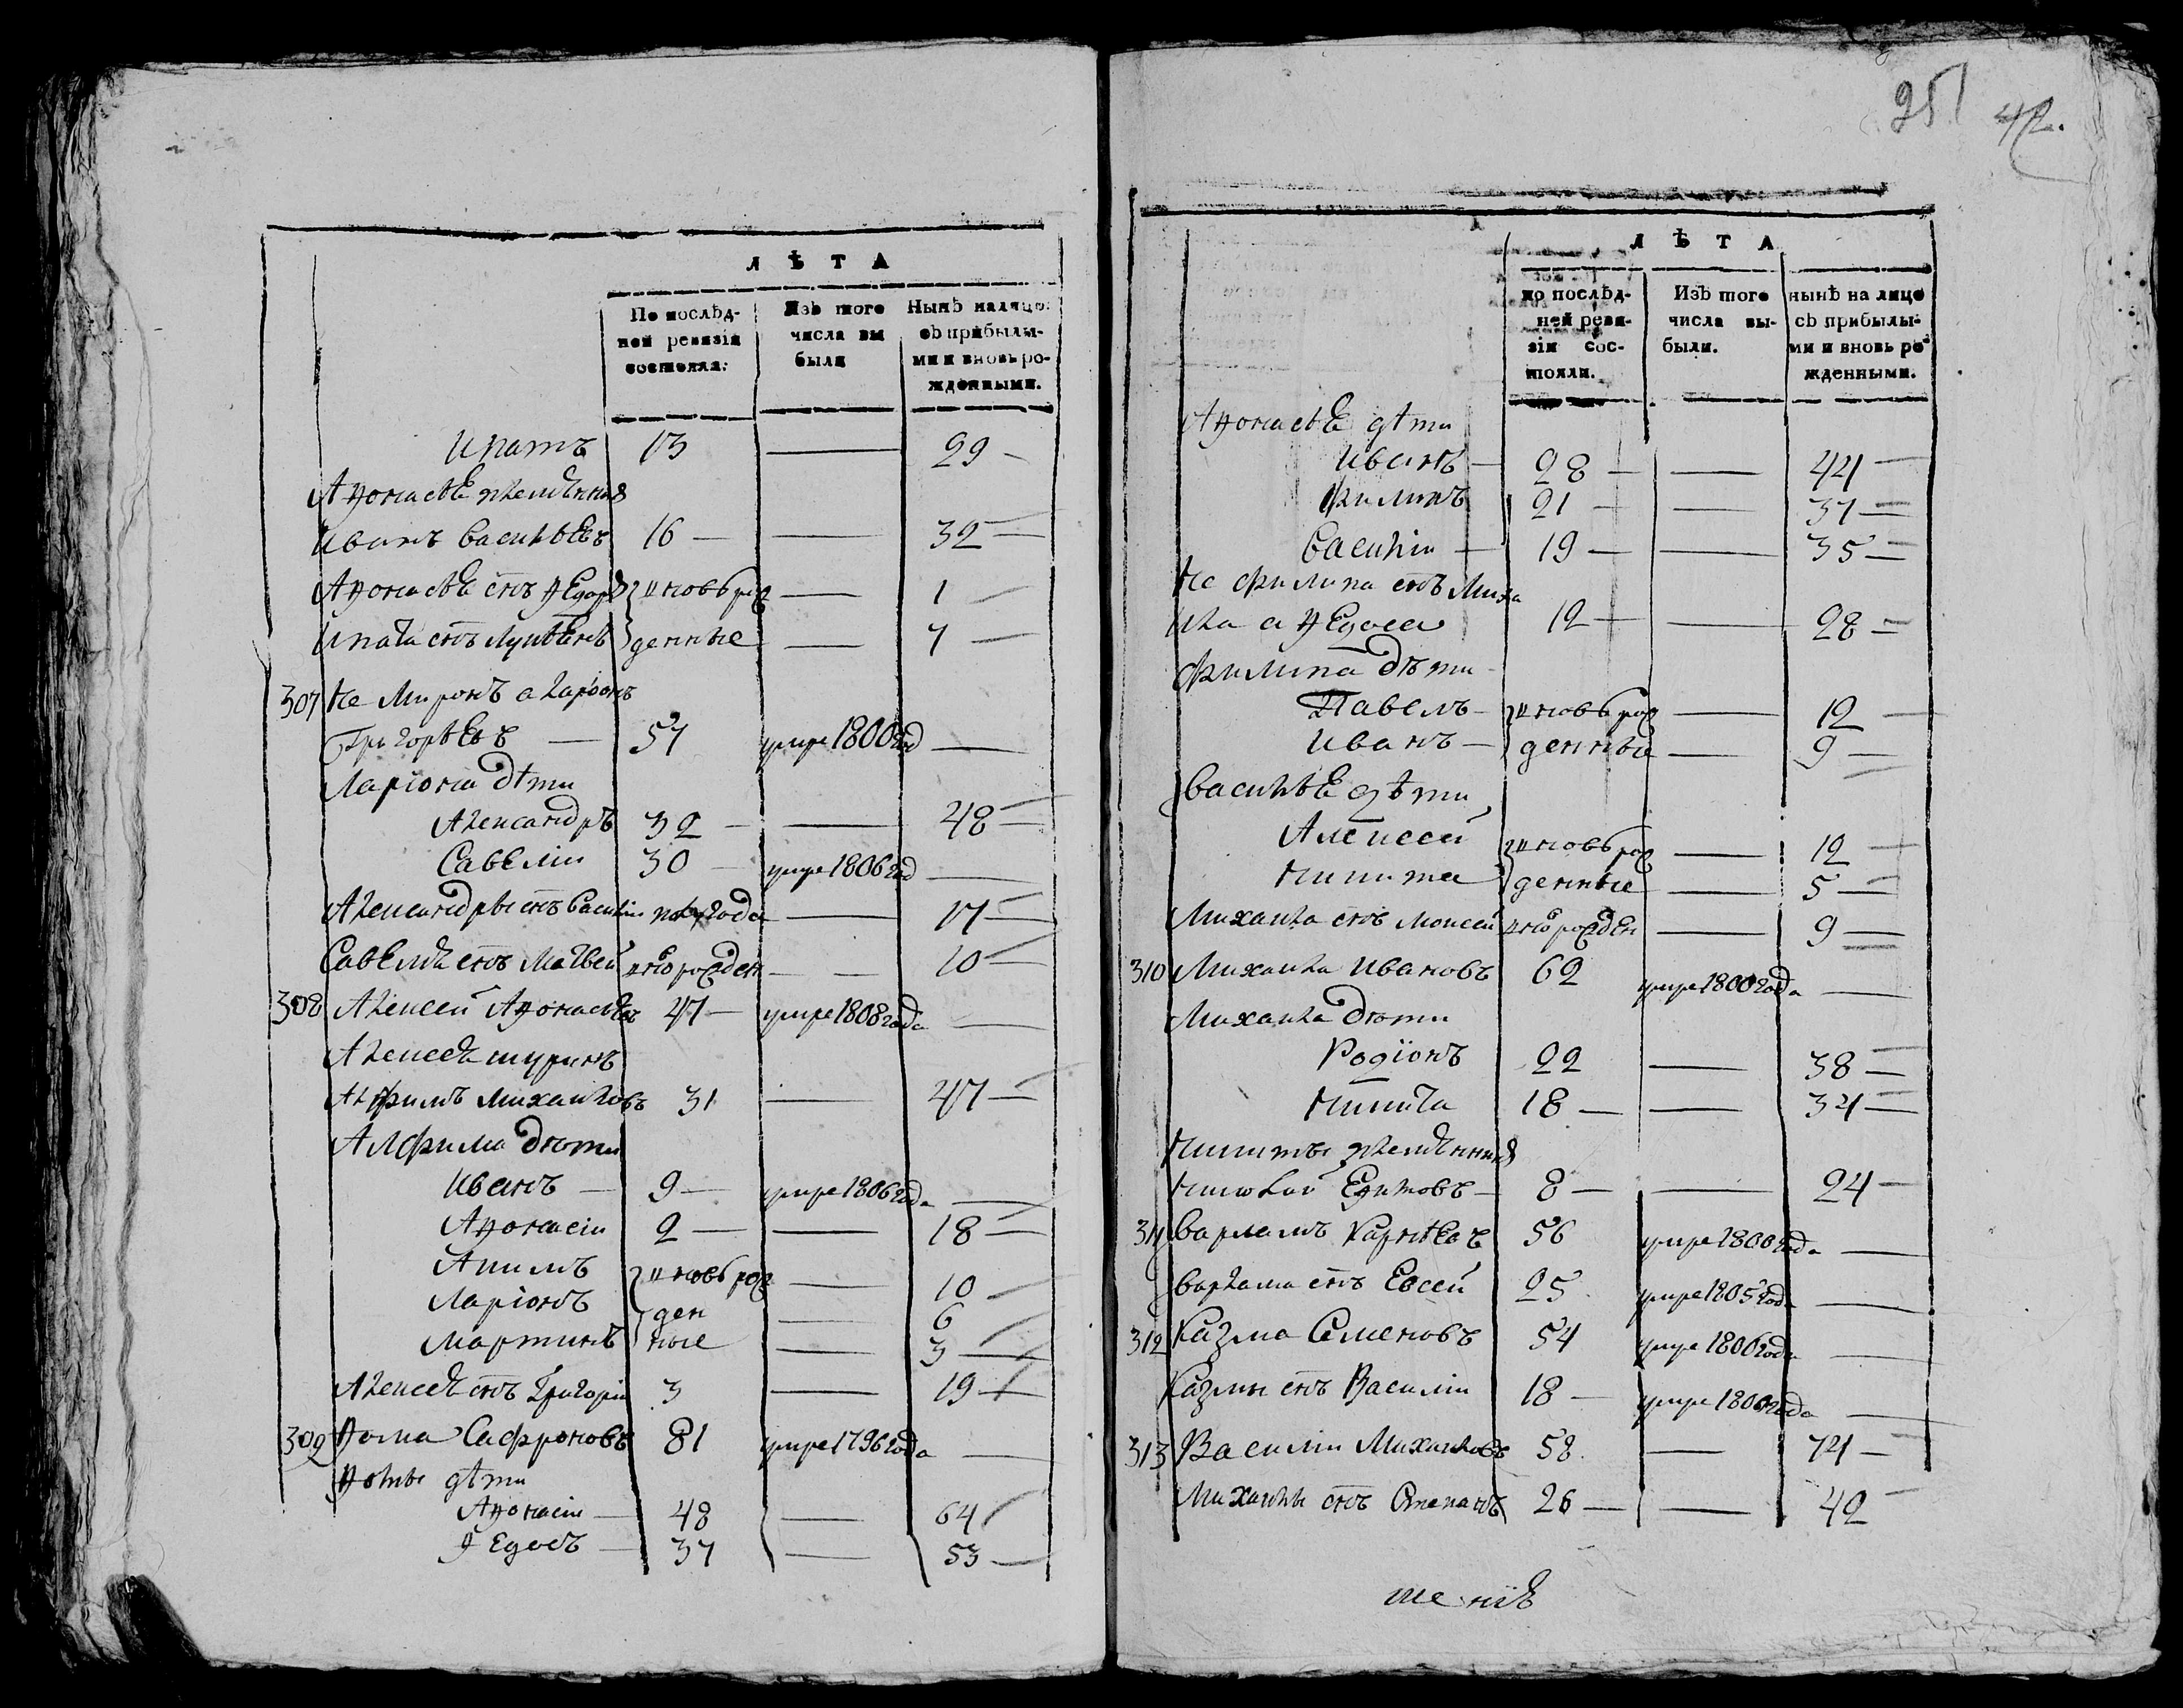 ЛѢТА
По послѣд-
ней ревизіи
состояли:
Изъ того
числа вы
были
Нынѣ налицо
съ прибылы-
ми и вновь ро-
жденными.
Ипатъ 13 — 29 —
Аѳонасья племѣнникъ
Иванъ Васильевъ 16 — — 32 —
Аѳонасья снъ Ѳедоръ } вновь рож — 1 —
Ипата снъ Лупьянъ } денные — 7 —
307 Не Миронъ а Ларіонъ
Григорьевъ — 57 умре 1800 год —
Ларіона дѣти
Александръ 32 — — 48 —
Савелій 30 — умре 1806 год —
Александры снъ Василій полугода — 17 —
Савелья снъ Матвей вно рожден — — 10 —
308 Алексей Аѳонасьевъ 47 — умре 1808 года —
Алексея шуринъ
Алфимъ Михайловъ 31 — 47 —
Алфима дѣти
Иванъ — 9 — умре 1806 года —
Аѳонасій 2 — — 18 —
Акимъ } вновь рож — 10 —
Ларіонъ } ден — 6 —
Мартинъ } ные — 3 —
Алексея снъ Григорій 3 — 19 —
309 Ѳома Сафроновъ 81 умре 1796 года —
Ѳомы дѣти
Аѳонасій — 48 — 64
Ѳедосъ — 37 — 53 —
251 42.
ЛѢТА
по послѣд-
ней реви-
зіи сос-
тояли.
Изъ того
числа вы-
были.
нынѣ на лицо
съ прибылы-
ми и вновь ро-
жденными.
Аѳонасья дѣти
Иванъ — 28 — — 44 —
Филипъ 21 — — 37 —
Василій — 19 — — 35 —
Не Филипа снъ Миха
йла а Ѳедоса 12 — — 28 —
Филипа дѣти
Павелъ — } вновь рож — 12 —
Иванъ — } денные — 9 —
Васильья дѣти
Алексей } вновь рож — 12 —
Никита } денные — 5 —
Михайла снъ Моисей вно рожден — 9 —
310 Михайла Ивановъ 62 умре 1800 года —
Михайла дѣти
Родіонъ 22 — 38 —
Никита 18 — — 34 —
Никиты племѣнникъ
Николай — 8 — — 24 —
311 Варламъ Карпѣевъ 56 умре 1800 года —
Варлама снъ Евсей 25 умре 1805 года —
312 Казма Семеновъ 54 умре 1806 года —
Казмы снъ Василій 18 — умре 1800 года —
313 Василій Михайловъ 58 — 74 —
Михайлы снъ Степанъ 26 — — 42
шеніе